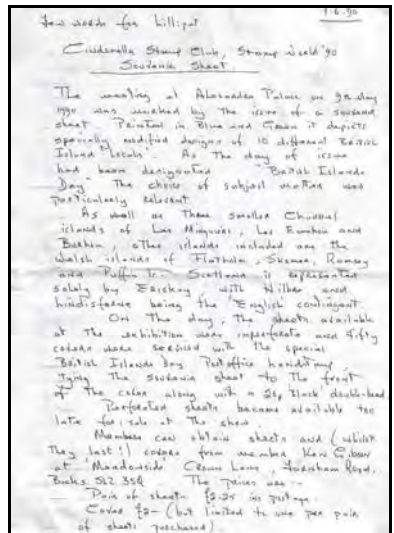 7.6.90
Few words for Lilliput
Cinderella Stamp Club, Stamp World '90
Souvenir Sheet.
The meeting at Alexandra Palace on 9th May
1990 was marked by the issue of a souvenir
sheet. Printed in Blue and Green it depicts
specially modified designs of 10 different British
Island "locals". As the day of issue
had been designated "British Islands
Day" the choice of subject matter was
particularly relevant.
As well as the smaller Channel
islands of Les Minquies, Les Ecrehou and
Brechou, other islands included are the
Welsh islands of Flatholm, Skomer, Ramsey
and Puffin Is. Scotland is represented
solely by Eriskay, with Hilbre and
Lindisfarne being the English contingent.
On the day, the sheets available
at the exhibition were imperforate and fifty
covers were serviced with the special
British Islands Day Post office handstamp,
tying the souvenir sheet to the front
of the cover along with a 20p black double-head.
Perforated sheets became available too
late for sale at the show.
Members can obtain sheets and (whilst
they last!) covers from member Ken Gibson
at 'Meadowside' Crown Lane, Farnham Road,
Bucks SL2 3SQ The prices are :-
Pair of sheets £2.25 inc postage.
Cover £2- (but limited to one per pair
of sheets purchased).